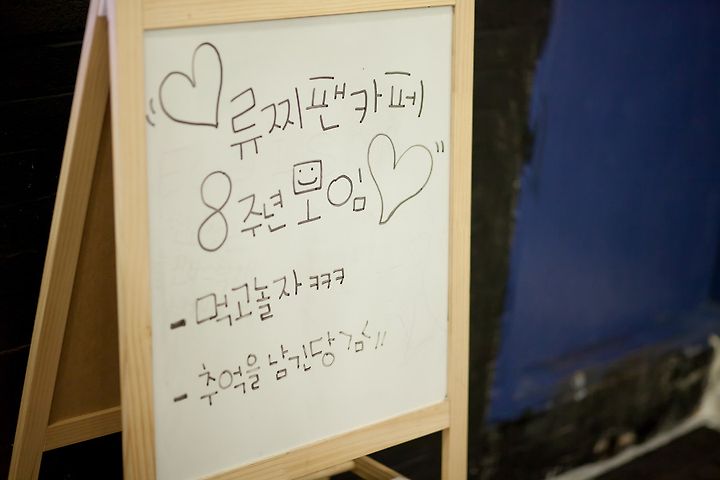 류찌팬카페
8주년 모임
- 먹고놀자 ㅋㅋㅋ
- 추억을 남긴당